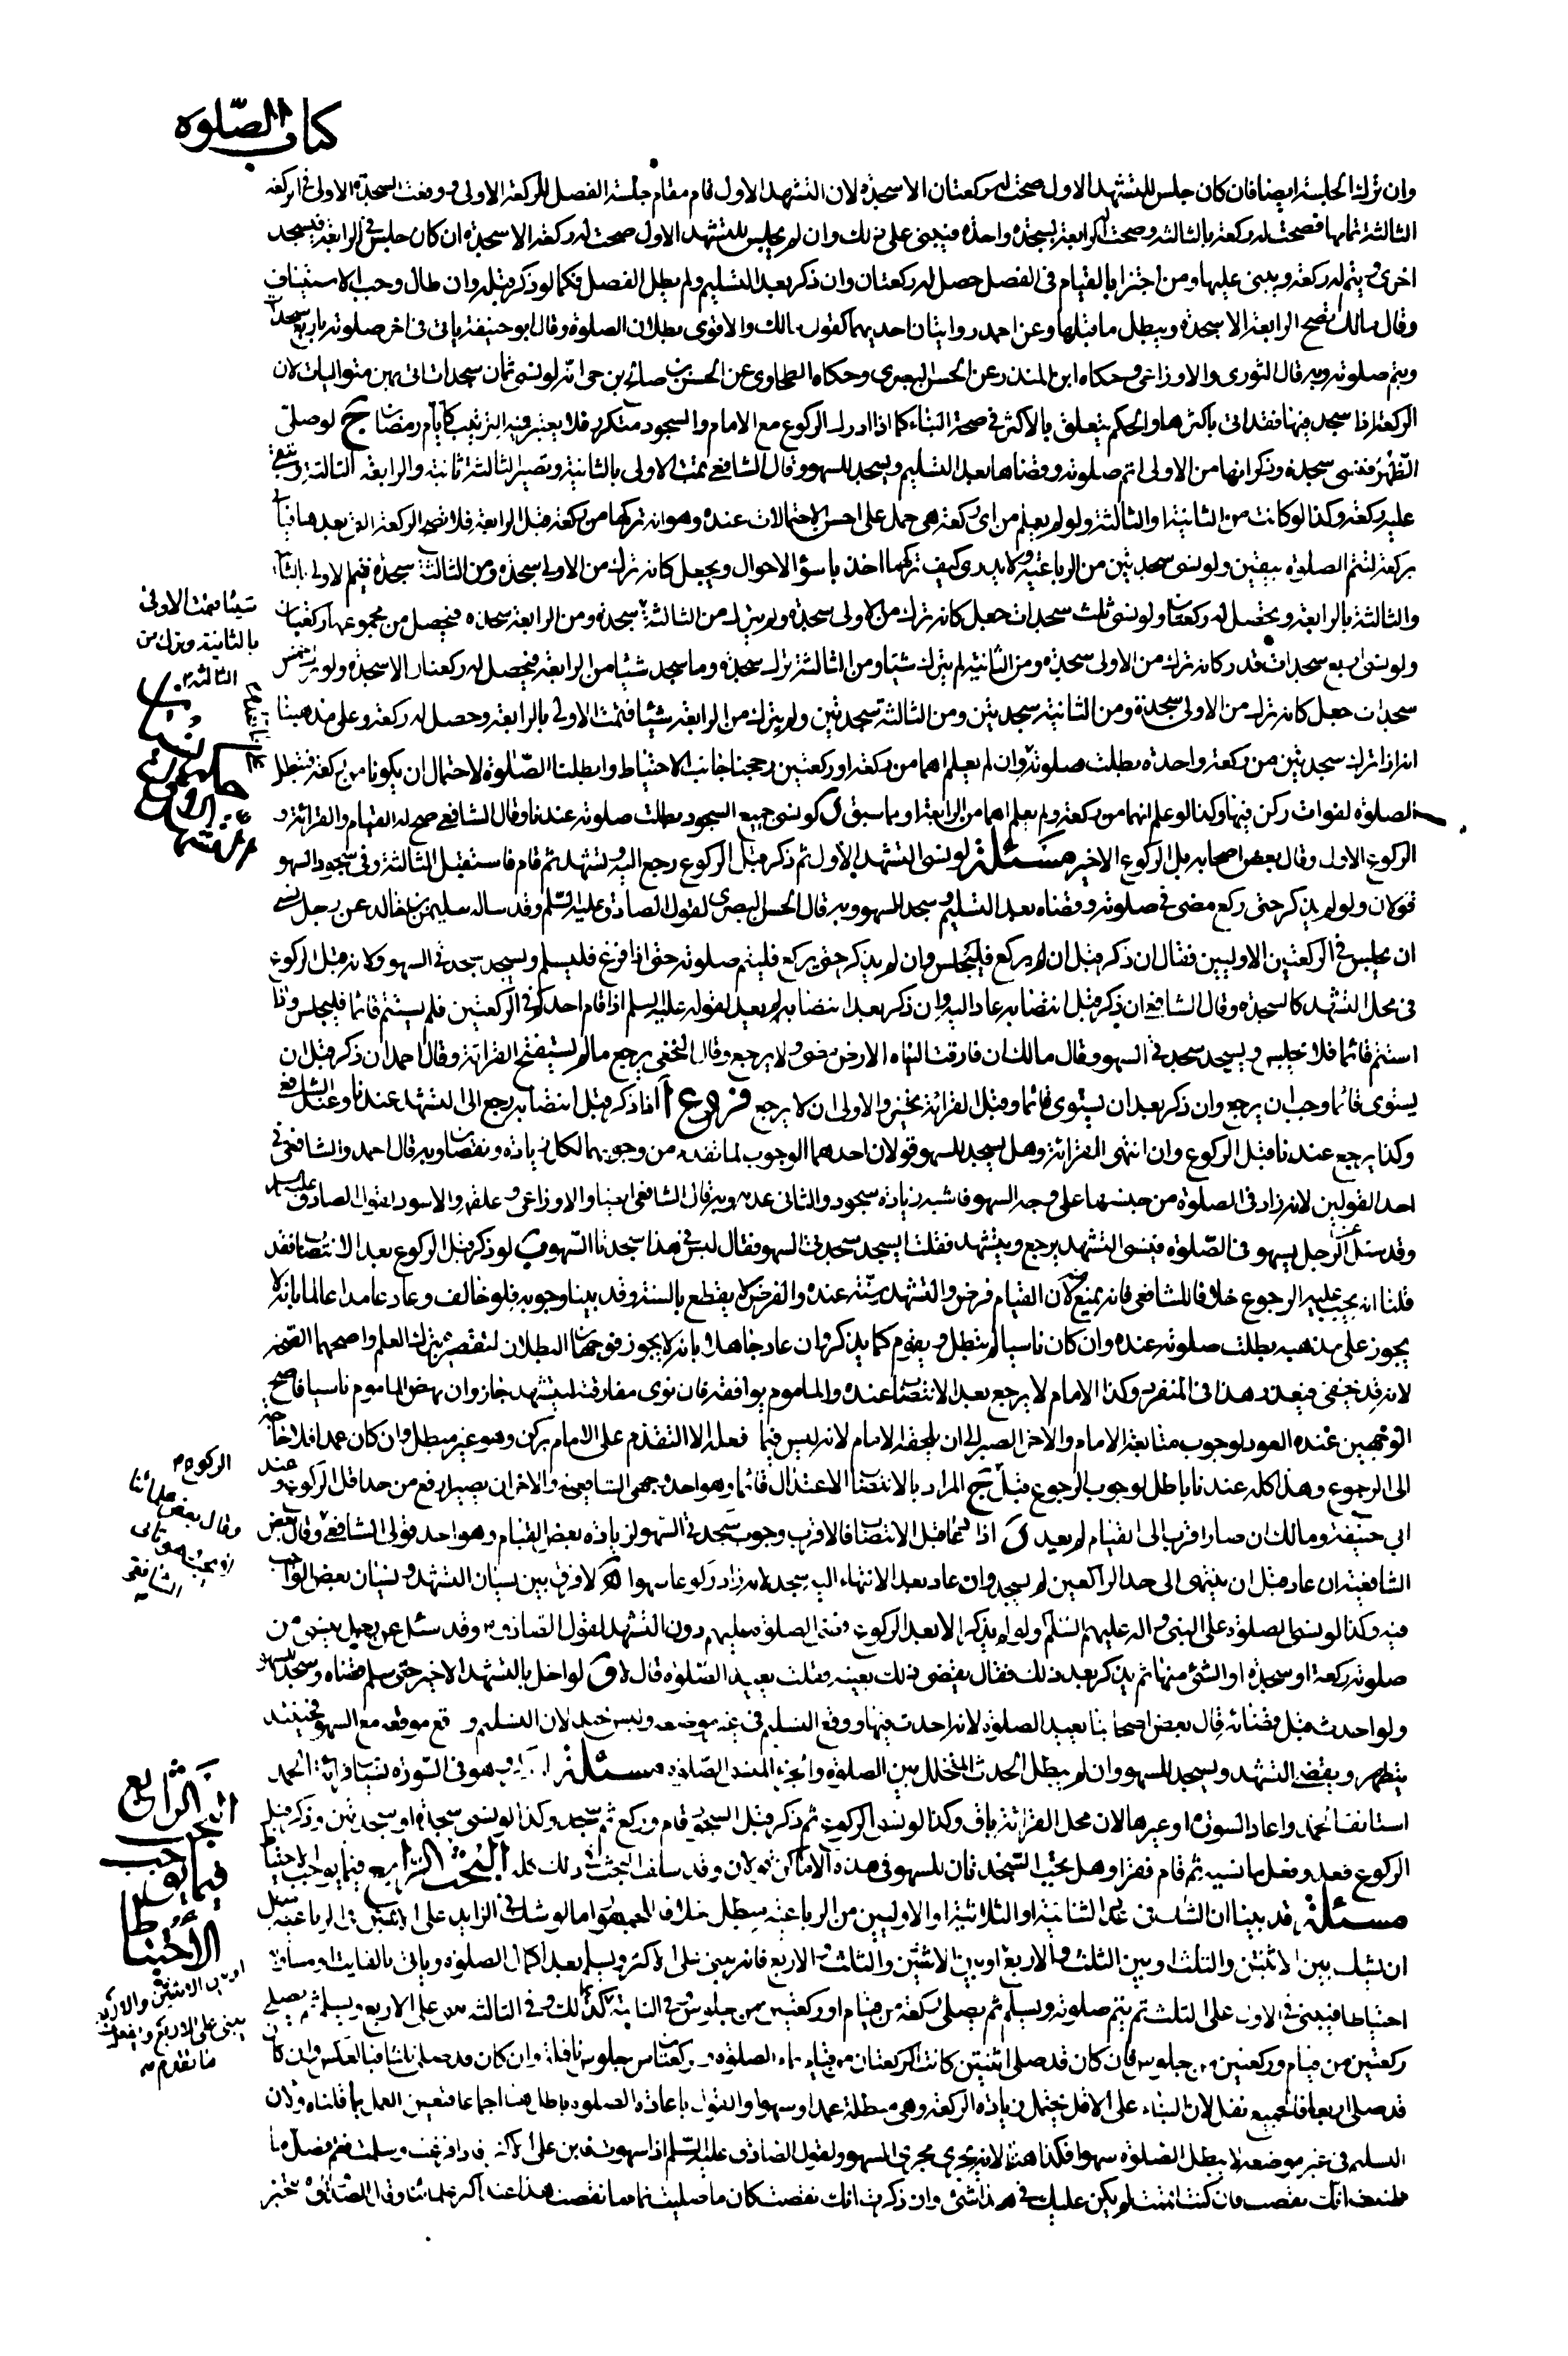 كتاب الصّلوة
وان ترك الجلسة ايضا فان كان جلس للتشهد الاول صحت له ركعتان الا سجدة لان التشهد الاول قام مقام جلسة الفصل للركعة الاولى ووقعت السجدة الاولى في الركعة
الثالثة تمامها فصحت له ركعة بالثالثة وصحت الرابعة بسجدة واحدة فيبنى على ذلك وان لم يجلس للتشهد الاول صحت له ركعة الا سجدة ان كان جلس في الرابعة فيسجد
اخرى ويتم له ركعة ويبنى عليها ومن اجتزا بالقيام فى الفصل حصل له ركعتان وان ذكر بعد التسليم ولم يطل الفصل فكما لو ذكر قبله وان طال وجب الاستيناف
وقال مالك تصح الرابعة الا سجدة ويبطل ما قبلها وعن احمد روايتان احديهما كقول مالك والاقوى بطلان الصلوة وقال ابو حنيفة ياتى فى اخر صلوته باربع سجدات
ويتم صلوته وبه قال الثورى والاوزاعى وحكاه ابن المنذر عن الحسن البصري وحكاه الطحاوى عن الحسن بن صالح بن حى انه لو نسى ثمان سجدات اتى بهن متواليات لان
الركعة اذا سجد فيها فقد اتى باكثرها والحكم يتعلق بالاكثر فى صحة البناء كما اذا ادرك الركوع مع الامام والسجود متكرر فلا يعتبر فيه الترتيب كايام رمضان ج لو صلى
الظهر فنسى سجدة وذكر انها من الاولى اتم صلوته وقضاها بعد التسليم ويسجد للسهو وقال الشافعى تمت الاولى بالثانية وتصير الثالثة ثانية والرابعة الثالثة وتبقى
عليه ركعة وكذا لو كانت من الثانية او الثالثة ولو لم يعلم من اى ركعة هى حمل على احسن الاحتمالات عنده وهو انه تركها من ركعة قبل الرابعة فلا تصح الركعة التى بعدها فياتى
بركعة لتتم الصلوة بيقين ولو نسى سجدتين من الرباعية ولا يدرى كيف تركهما اخذ باسؤ الاحوال ويجعل كانه ترك من الاولى سجدة ومن الثالثة سجدة فيتم الاولى بالثانية
والثالثة بالرابعة ويحصل له ركعتان ولو نسى ثلث سجدات جعل كانه ترك من الاولى سجدة ولم يترك من الثالثة سجدة ومن الرابعة سجدة فيحصل من مجموعها ركعتان
ولو نسى اربع سجدات قدر كانه ترك من الاولى سجدة ومن الثانية لم يترك شيئا ومن الثالثة ترك سجدة وما سجد شيئا من الرابعة فيحصل له ركعتان الا سجدة ولو ترك خمس
سجدات جعل كانه ترك من الاولى سجدة ومن الثانية سجدتين ومن الثالثة سجدتين ولم يترك من الرابعة شيئا فتمت الاولى بالرابعة وحصل له ركعة وعلى مذهبنا
انه اذا ترك سجدتين من ركعة واحدة بطلت صلوته وان لم يعلم اهما من ركعة او ركعتين رجحنا جانب الاحتياط وابطلنا الصّلوة لاحتمال ان يكونا من ركعة فتبطل
الصلوة لفوات ركن فيها وكذا لو علم انهما من ركعة ولم يعلم اهما من الرابعة او بما سبق ل لو نسى جميع السجود بطلت صلوته عندنا وقال الشافعى صح له القيام والقرائة و
الركوع الاول وقال بعض اصحابه بل الركوع الاخير مسئلة لو نسى التشهد الاول ثم ذكر قبل الركوع رجع اليه وتشهد ثم قام فاستقبل الثالثة وفى سجود السهو
قولان ولو لم يذكر حتى ركع مضى فى صلوته وقضاه بعد التسليم وسجد للسهو وبه قال الحسن البصرى لقول الصادق عليه السّلم وقد ساله سليمن بن خالد عن رجل نسى
ان يجلس في الركعتين الاوليين فقال ان ذكر قبل ان يركع فليجلس وان لم يذكر حتى يركع فليتم صلوته حتى اذا فرغ فليسلم ويسجد سجدتى السهو ولانه قبل الركوع
فى محل التشهد كالسجدة وقال الشافعى ان ذكر قبل انتصابه عاد اليه وان ذكر بعد انتصابه لم يعد لقوله عليه السلم اذا قام احدكم فى الركعتين فلم يستتم قائما فليجلس واذا
استتم قائما فلا يجلس ويسجد سجدتى السهو وقال مالك ان فارقت الياه الارض مضى ولا يرجع وقال النخعى يرجع ما لم يستفتح القرائة وقال احمد ان ذكر قبل ان
يستوى قائما وجب ان يرجع وان ذكر بعد ان يستوى قائما وقبل القرائة تخير والاولى ان لا يرجع فروع ا اذا ذكر قبل انتصابه رجع الى التشهد عندنا وعند الشافعى
وكذا يرجع عندنا قبل الركوع وان انتهى القرائة وهل يسجد للسهو قولان احدهما الوجوب لما تقدم من وجوبهما لكل زيادة ونقصان وبه قال احمد والشافعى فى
احد القولين لانه زاد فى الصلوة من جنسها على وجه السهو فاشبه زيادة سجود والثانى عدمه وبه قال الشافعى ايضا والاوزاعى وعلقمة والاسود لقول الصادق عليه السلم
وقد سئل عن الرجل يسهو فى الصّلوة فينسى التشهد يرجع ويتشهد فقلت ايسجد سجدتى السهو فقال ليس فى هذا سجدتا السّهو ب لو ذكر قبل الركوع بعد الانتصاب فقد
قلنا انه يجب عليه الرجوع خلافا للشافعى فانه يمنع منه لان القيام فرض والتشهد سنّة عنده والفرض لا يقطع بالسنة وقد بينا وجوبه فلو خالف وعاد عامدا عالما بانه لا
يجوز على مذهبه بطلت صلوته عنده وان كان ناسيا لم تبطل ويقوم كما يذكر وان عاد جاهلا بانه لا يجوز فوجهان البطلان لتقصيره بترك العلم واصحهما الصحة
لانه قد يخفى فيعذر هذا فى المنفرد وكذا الامام لا يرجع بعد الانتصاب عنده والماموم يوافقه فان نوى مفارقته ليتشهد جاز وان نهض الماموم ناسيا فاصح
الوجهين عنده العود لوجوب متابعة الامام والاخر الصبر الى ان يلحقه الامام لانه ليس فيما فعله الا التقدم على الامام بركن وهو غير مبطل وان كان عمدا فلا حاجة
الى الرجوع وهذا كله عندنا باطل لوجوب الرجوع قبل ج المراد بالانتصاب الاعتدال قائما وهو احد وجهى الشافعية والاخر ان يصير ارفع من حد اقل الركوع وعند
ابي حنيفة ومالك ان صار اقرب الى القيام لم يعد ل اذا قام قبل الانتصاب فالاقرب وجوب سجدتى السّهو لزيادة بعض القيام وهو احد قولى الشافعى وقال بعض
الشافعية ان عاد قبل ان ينتهى الى حد الراكعين لم يسجد وان عاد بعد الانتهاء اليه سجد لانه زاد ركوعا سهوا ه لا فرق بين نسيان التشهد ونسيان بعض الواجب
فيه وكذا لو نسى الصلوة على النبى واله عليهم السّلم ولو لم يذكر الا بعد الركوع قضى الصلوة عليهم دون التشهد لقول الصادق وقد سئل عن رجل ينسى من
صلوته ركعة او سجدة او الشئ منها ثم يذكر بعد ذلك فقال يقضى ذلك بعينه فقلت يعيد الصّلوة قال لا و لو اخل بالتشهد الاخير حتى سلم قضاه وسجد للسهو
ولو احدث قبل قضائه قال بعض اصحابنا يعيد الصلوة لانه احدث فيها ووقع التسليم فى غير موضعه وليس بجيد لان التسليم وقع موقعه مع السهو فحينئذ
يتطهر ويقضى التشهد ويسجد للسهو وان لم يبطل الحدث المتخلل بين الصلوة واجزاء المنسية الصّلوة مسئلة لو ذكر وهو فى السّورة نسيان قرائة الحمد
استانف الحمد واعاد السورة او غيرها لان محل القرائة باق وكذا لو نسى الركوع ثم ذكر قبل السجود قام وركع ثم سجد وكذا لو نسى سجدة او سجدتين وذكر قبل
الركوع قعد وفعل ما نسيه ثم قام فقرا وهل يجب السّجدتان للسهو فى هذه الاماكن قولان وقد سلف البحث فى ذلك كله البحث الرّابع فيما يوجب الاحتياط
مسئلة قد بينا ان الشك فى عدد الثنائية او الثلاثية او الاوليين من الرباعية مبطل خلافا للجمهور اما لو شك فى الزايد على الاثنتين فى الرباعية مثل
ان يشك بين الاثنتين والثلث او بين الثلث والاربع او بين الاثنتين والثلث والاربع فانه يبنى على الاكثر ويسلم بعد اكمال الصلوة وياتى بالفايت او مساويه
احتياطا فيبنى فى الاول على الثلث ثم يتم صلوته ويسلم ثم يصلى ركعة من قيام او ركعتين من جلوس وفى الثانية كذلك وفى الثالثة يبنى على الاربع ويسلم ثم يصلى
ركعتين من قيام وركعتين من جلوس فان كان قد صلى اثنتين كانت الركعتان من قيام تمام الصلوة وركعتان من جلوس نافلة وان كان قد صلى ثلثا فبالعكس وان كان
قد صلى اربعا فالجميع نفل لان البناء على الاقل يحتمل زيادة الركعة وهى مبطلة عمدا وسهوا والقول باعادة الصلوة باطل هنا اجماعا فتعين العمل بما قلناه ولان
التسليم فى غير موضعه لا يبطل الصّلوة سهوا فكذا هنا لانه يجرى مجرى السهو ولقول الصادق عليه السّلم اذا سهوت فابن على الاكثر فاذا فرغت وسلمت فقم فصل ما
ظننت انك نقصت فان كنت اتممت لم يكن عليك فى هذا شئ وان ذكرت انك نقصت كان ما صليت تمام ما نقصت هذا عند اكثر علمائنا وقال الصّدوق تخير
شيئا فتمت الاولى
بالثانية وترك من
الثالثة
الركوع
وقال بعض علمائنا
لا يجب وهو ثانى
الشافعى
البحث الرّابع
فيما يوجب
الاحتياط
او بين الاثنتين والاربع
يبنى على الاربع ويفعل
ما تقدم